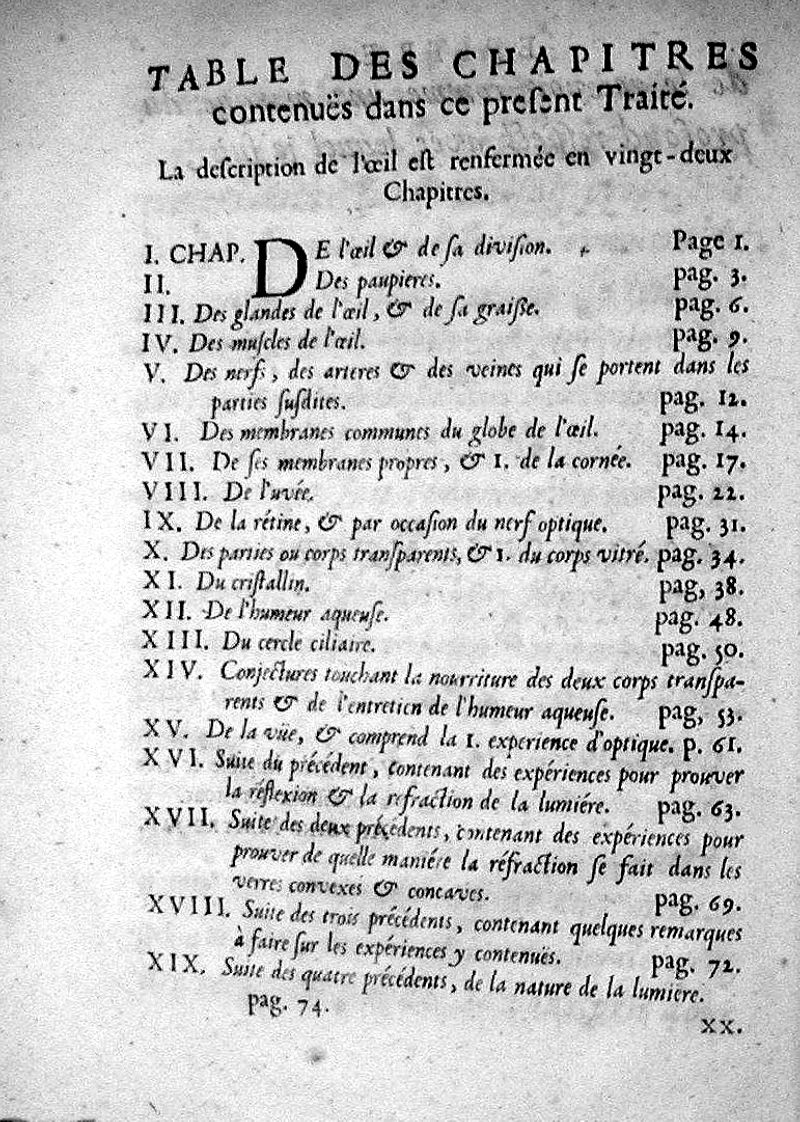 TABLE DES CHAPITRES
contenuës dans ce preſent Traité.
La deſcription de l'œil eſt renfermée en vingt-deux
Chapitres.
I. CHAP. DE l'œil & de ſa diviſion. Page 1.
II. Des paupieres. pag. 3.
III. Des glandes de l'œil, & de ſa graiſſe. pag. 6.
IV. Des muſcles de l'œil. pag. 9.
V. Des nerfs, des arteres & des veines qui ſe portent dans les
parties ſuſdites. pag. 12.
VI. Des membranes communes du globe de l'œil. pag. 14.
VII. De ſes membranes propres, & 1. de la cornée. pag. 17.
VIII. De l'uvée. pag. 22.
IX. De la rétine, & par occaſion du nerf optique. pag. 31.
X. Des parties ou corps tranſparents, & 1. du corps vitré. pag. 34.
XI. Du criſtallin. pag, 38.
XII. De l'humeur aqueuſe. pag. 48.
XIII. Du cercle ciliaire. pag. 50.
XIV. Conjectures touchant la nourriture des deux corps tranſpa-
rents & de l'entretien de l'humeur aqueuſe. pag, 53.
XV. De la vüe, & comprend la 1. experience d'optique. p. 61.
XVI. Suite du précédent, contenant des expériences pour prouver
la réflexion & la refraction de la lumiére. pag. 63.
XVII. Suite des deux précédents, contenant des expériences pour
prouver de quelle maniére la réfraction ſe fait dans les
verres convexes & concaves. pag. 69.
XVIII. Suite des trois précédents, contenant quelques remarques
à faire ſur les expériences y contenuës. pag. 72.
XIX. Suite des quatre précédents, de la nature de la lumiere.
pag. 74.
XX.